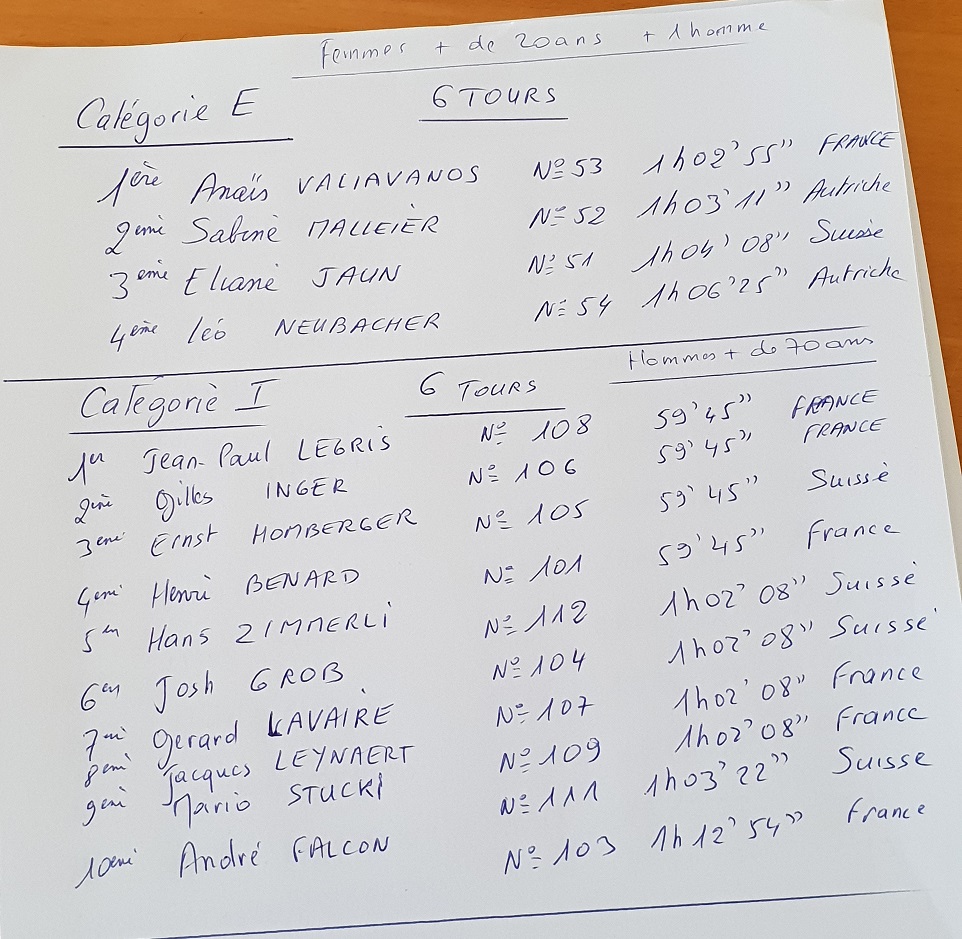 Femmes + de 20ans + 1homme
Catégorie E 6 TOURS
1ère Anaïs VALIAVANOS Nº 53 1h02'55" FRANCE
2èmè Sabinè MALLEIÈR Nº 52 1h03'11" Autriche
3èmè Elianè JAUN Nº 51 1h04'08" Suissè
4ème Léo NEUBACHER Nº 54 1h06'25" Autriche
Hommes + de 70ans
Catégoriè I 6 TOURS
1er Jean-Paul LEGRIS Nº 108 59'45" FRANCE
2èmè Gilles INGER Nº 106 59'45" FRANCE
3èmè Ernst HOMBERGER Nº 105 59'45" Suissè
4èmè Henri BENARD Nº 101 59'45" France
5èm Hans ZIMMERLI Nº 112 1h02'08" Suissè
6èm Josh GROB Nº 104 1h02'08" Suissè
7èmè Gerard LAVAIRE Nº 107 1h02'08" France
8èmè Jacques LEYNAERT Nº 109 1h02'08" France
9èmè Mario STUCKI Nº 111 1h03'22" Suisse
10èmè André FALCON Nº 103 1h12'54" France